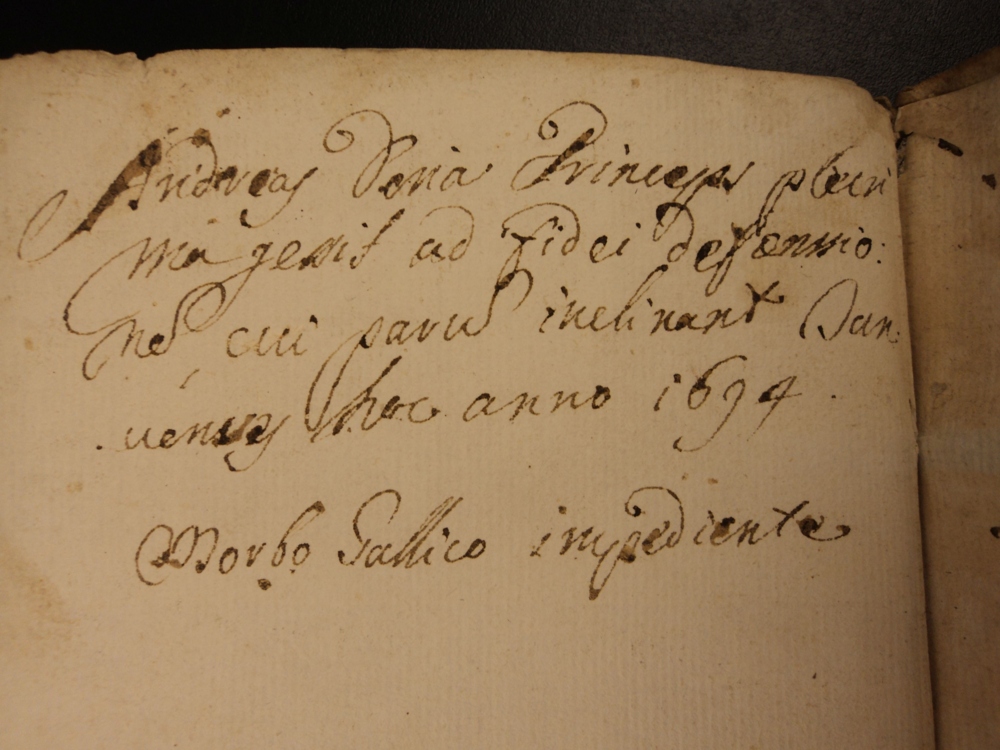 Andreas Doria Princeps pluri
ma gessit ad fidei defænsio:
nē cui parū inclinant Jan
uenses hoc anno 1694.
Morbo Gallico impediente